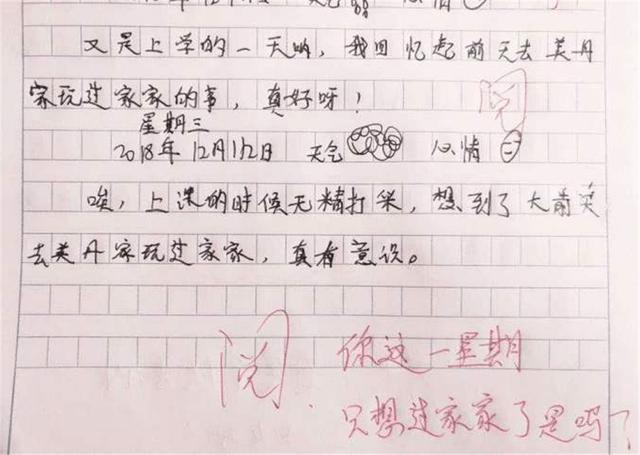 天气 心情
又是上学的一天呐，我回忆起前天去美丹
家玩过家家的事，真好呀！
阅
星期三
2018年12月12日 天气 心情
唉，上课的时候无精打采，想到了大前
去美丹家玩过家家，真有意识。
阅
你这一星期
只想过家家了是吗？